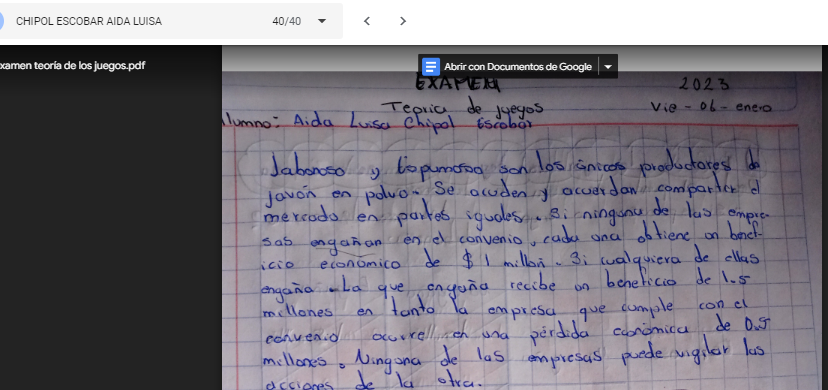 CHIPOL ESCOBAR AIDA LUISA 40/40
xamen teoría de los juegos.pdf
Abrir con Documentos de Google
EXAMEN 2023
Teoria de juegos Vie - 06 - enero
llumno: Aida Luisa Chipol Escobar
Jabonoso y Espumoso son los únicos productores de
javón en polvo. Se acuden y acuerdan compartir el
mercado en partes iguales. Si ninguna de las empre-
sas engañan en el convenio, cada una obtiene un benef-
icio económico de $ 1 millón. Si cualquiera de ellas
engaña. La que engaña recibe un beneficio de 1.5
millones en tanto la empresa que cumple con el
convenio en una pérdida económica de 0.5
millones. Ninguna de las empresas puede vigilar las
acciones de la otra.